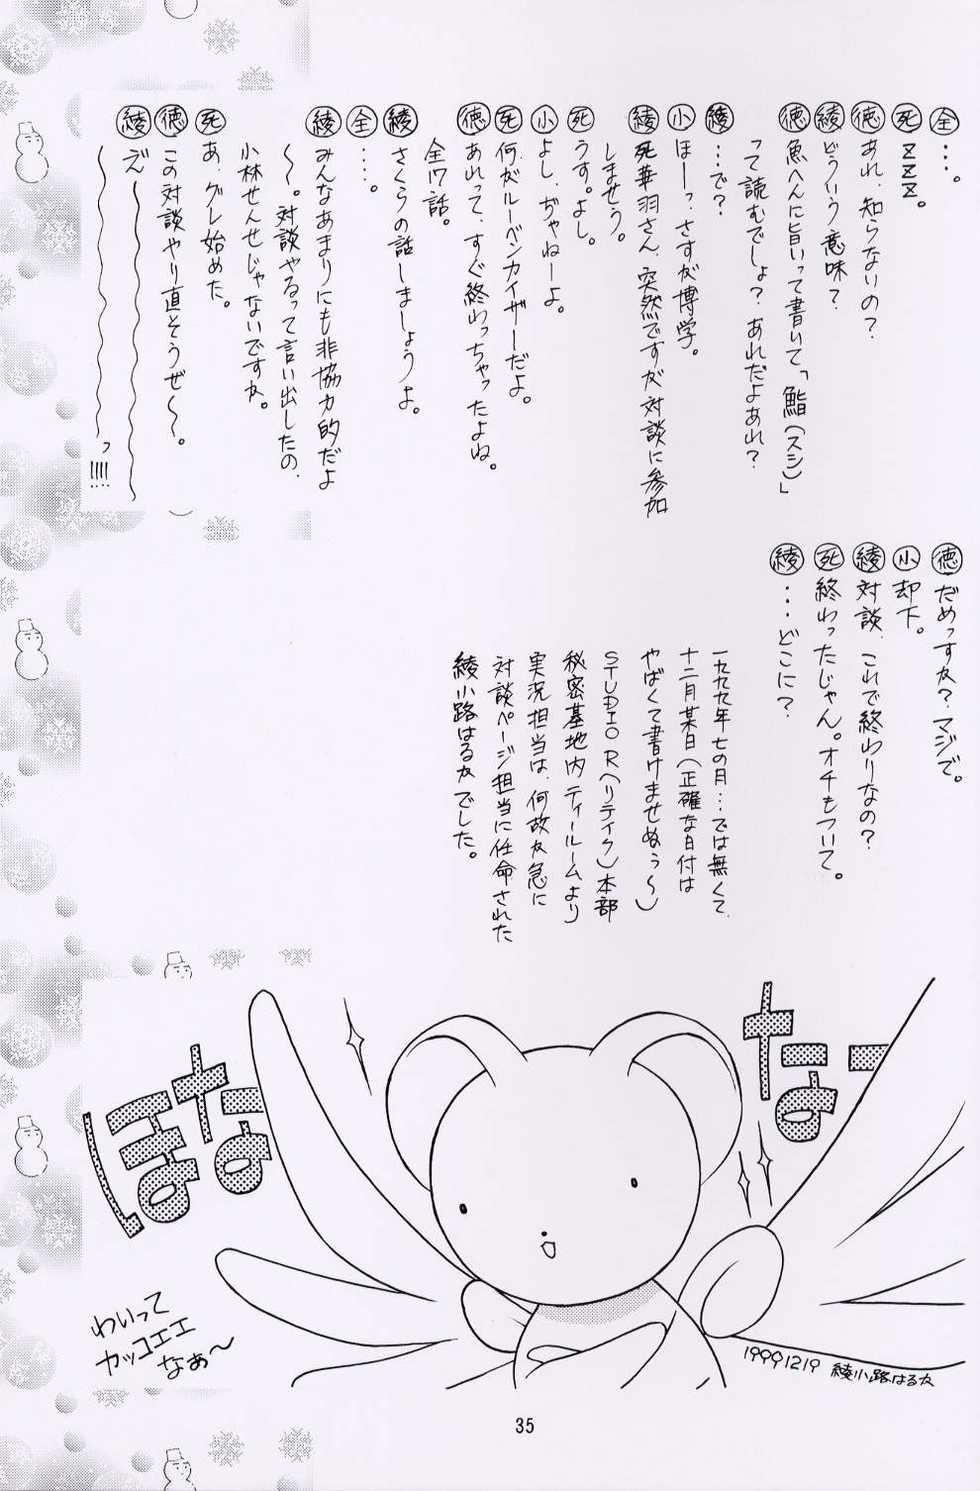 全 …。
死 ZZZ。
徳 あれ、知らないの？
綾 どういう意味？
徳 魚へんに旨いって書いて「鮨（スシ）」
って読むでしょ？あれだよあれ？
綾 …で？
小 ほーっ。さすが博学。
綾 死華羽さん、突然ですが対談に参加
しませう。
死 うす。よし。
小 よし、ぢゃねーよ。
死 何がルーベンカイザーだよ。
徳 あれって、すぐ終わっちゃったよね。
全17話。
綾 さくらの話しましょうよ。
全 …。
綾 みんなあまりにも非協力的だよ
〜。対談やるって言い出したの、
小林せんせじゃないですか。
死 あ、グレ始めた。
徳 この対談やり直そうぜ〜。
綾 だ〜〜〜
〜〜〜〜っ!!!!
徳 だめっすか？マジで。
小 却下。
綾 対談、これで終わりなの？
死 終わったじゃん。オチもついて。
綾 …どこに？
一九九九年七の月…では無くて、
十二月某日（正確な日付は
やばくて書けませぬぅ〜）
STUDIO R（リテイク）本部
秘密基地内ティールームより
実況担当は、何故か急に
対談ページ担当に任命された
綾小路はるかでした。
なー
な
ほな
わいって
カッコエエ
なぁ〜
19991219 綾小路はるか
35